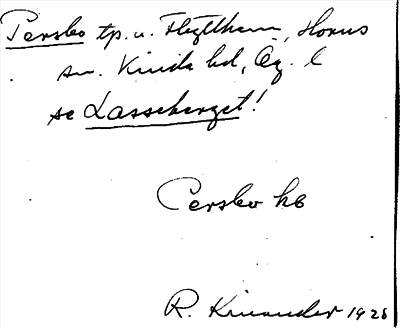 Persbo tp. u. Flygthem, Horns
sn. Kinda hd, Ög. l
se Lasseberget!
Persbo hb
R. Kinander 1928